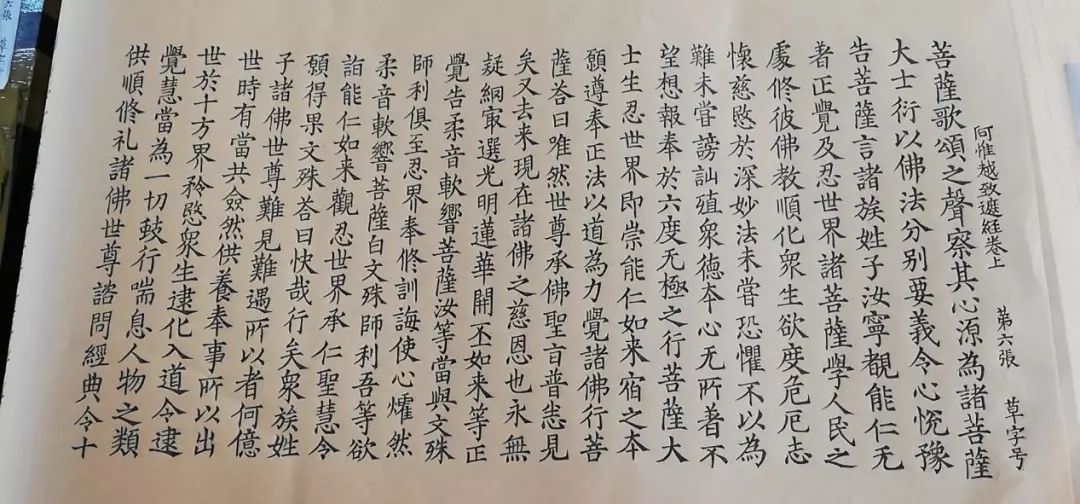 阿惟越致遮経卷上　第六張　草字号
菩薩歌頌之聲察其心源為諸菩薩
大士衍以佛法分别要義令心悅豫
告菩薩言諸族姓子汝寧覩能仁无
者正覺及忍世界諸菩薩學人民之
處修彼佛教順化衆生欲度危厄志
懷慈愍於深妙法未嘗恐懼不以為
難未嘗謗訕殖衆德夲心无所著不
望想報奉於六度无極之行菩薩大
士生忍世界即崇能仁如来宿之本
願尊奉正法以道為力覺諸佛行菩
薩荅曰唯然世尊承佛聖旨普悉見
矣又去来現在諸佛之慈恩也永無
疑網寂選光明蓮華開丕如来等正
覺告柔音軟響菩薩汝等當與文殊
師利俱至忍界奉修訓誨使心燿然
柔音軟響菩薩白文殊師利吾等欲
詣能仁如来觀忍世界承仁聖慧令
願得果文殊荅曰快哉行矣衆族姓
子諸佛世尊難見難遇所以者何億
世時有當共僉然供養奉事所以出
世於十方界矜愍衆生逮化入道令逮
覺慧當為一切蚑行喘息人物之類
供順修礼諸佛世尊諮問經典令十
六張
草字